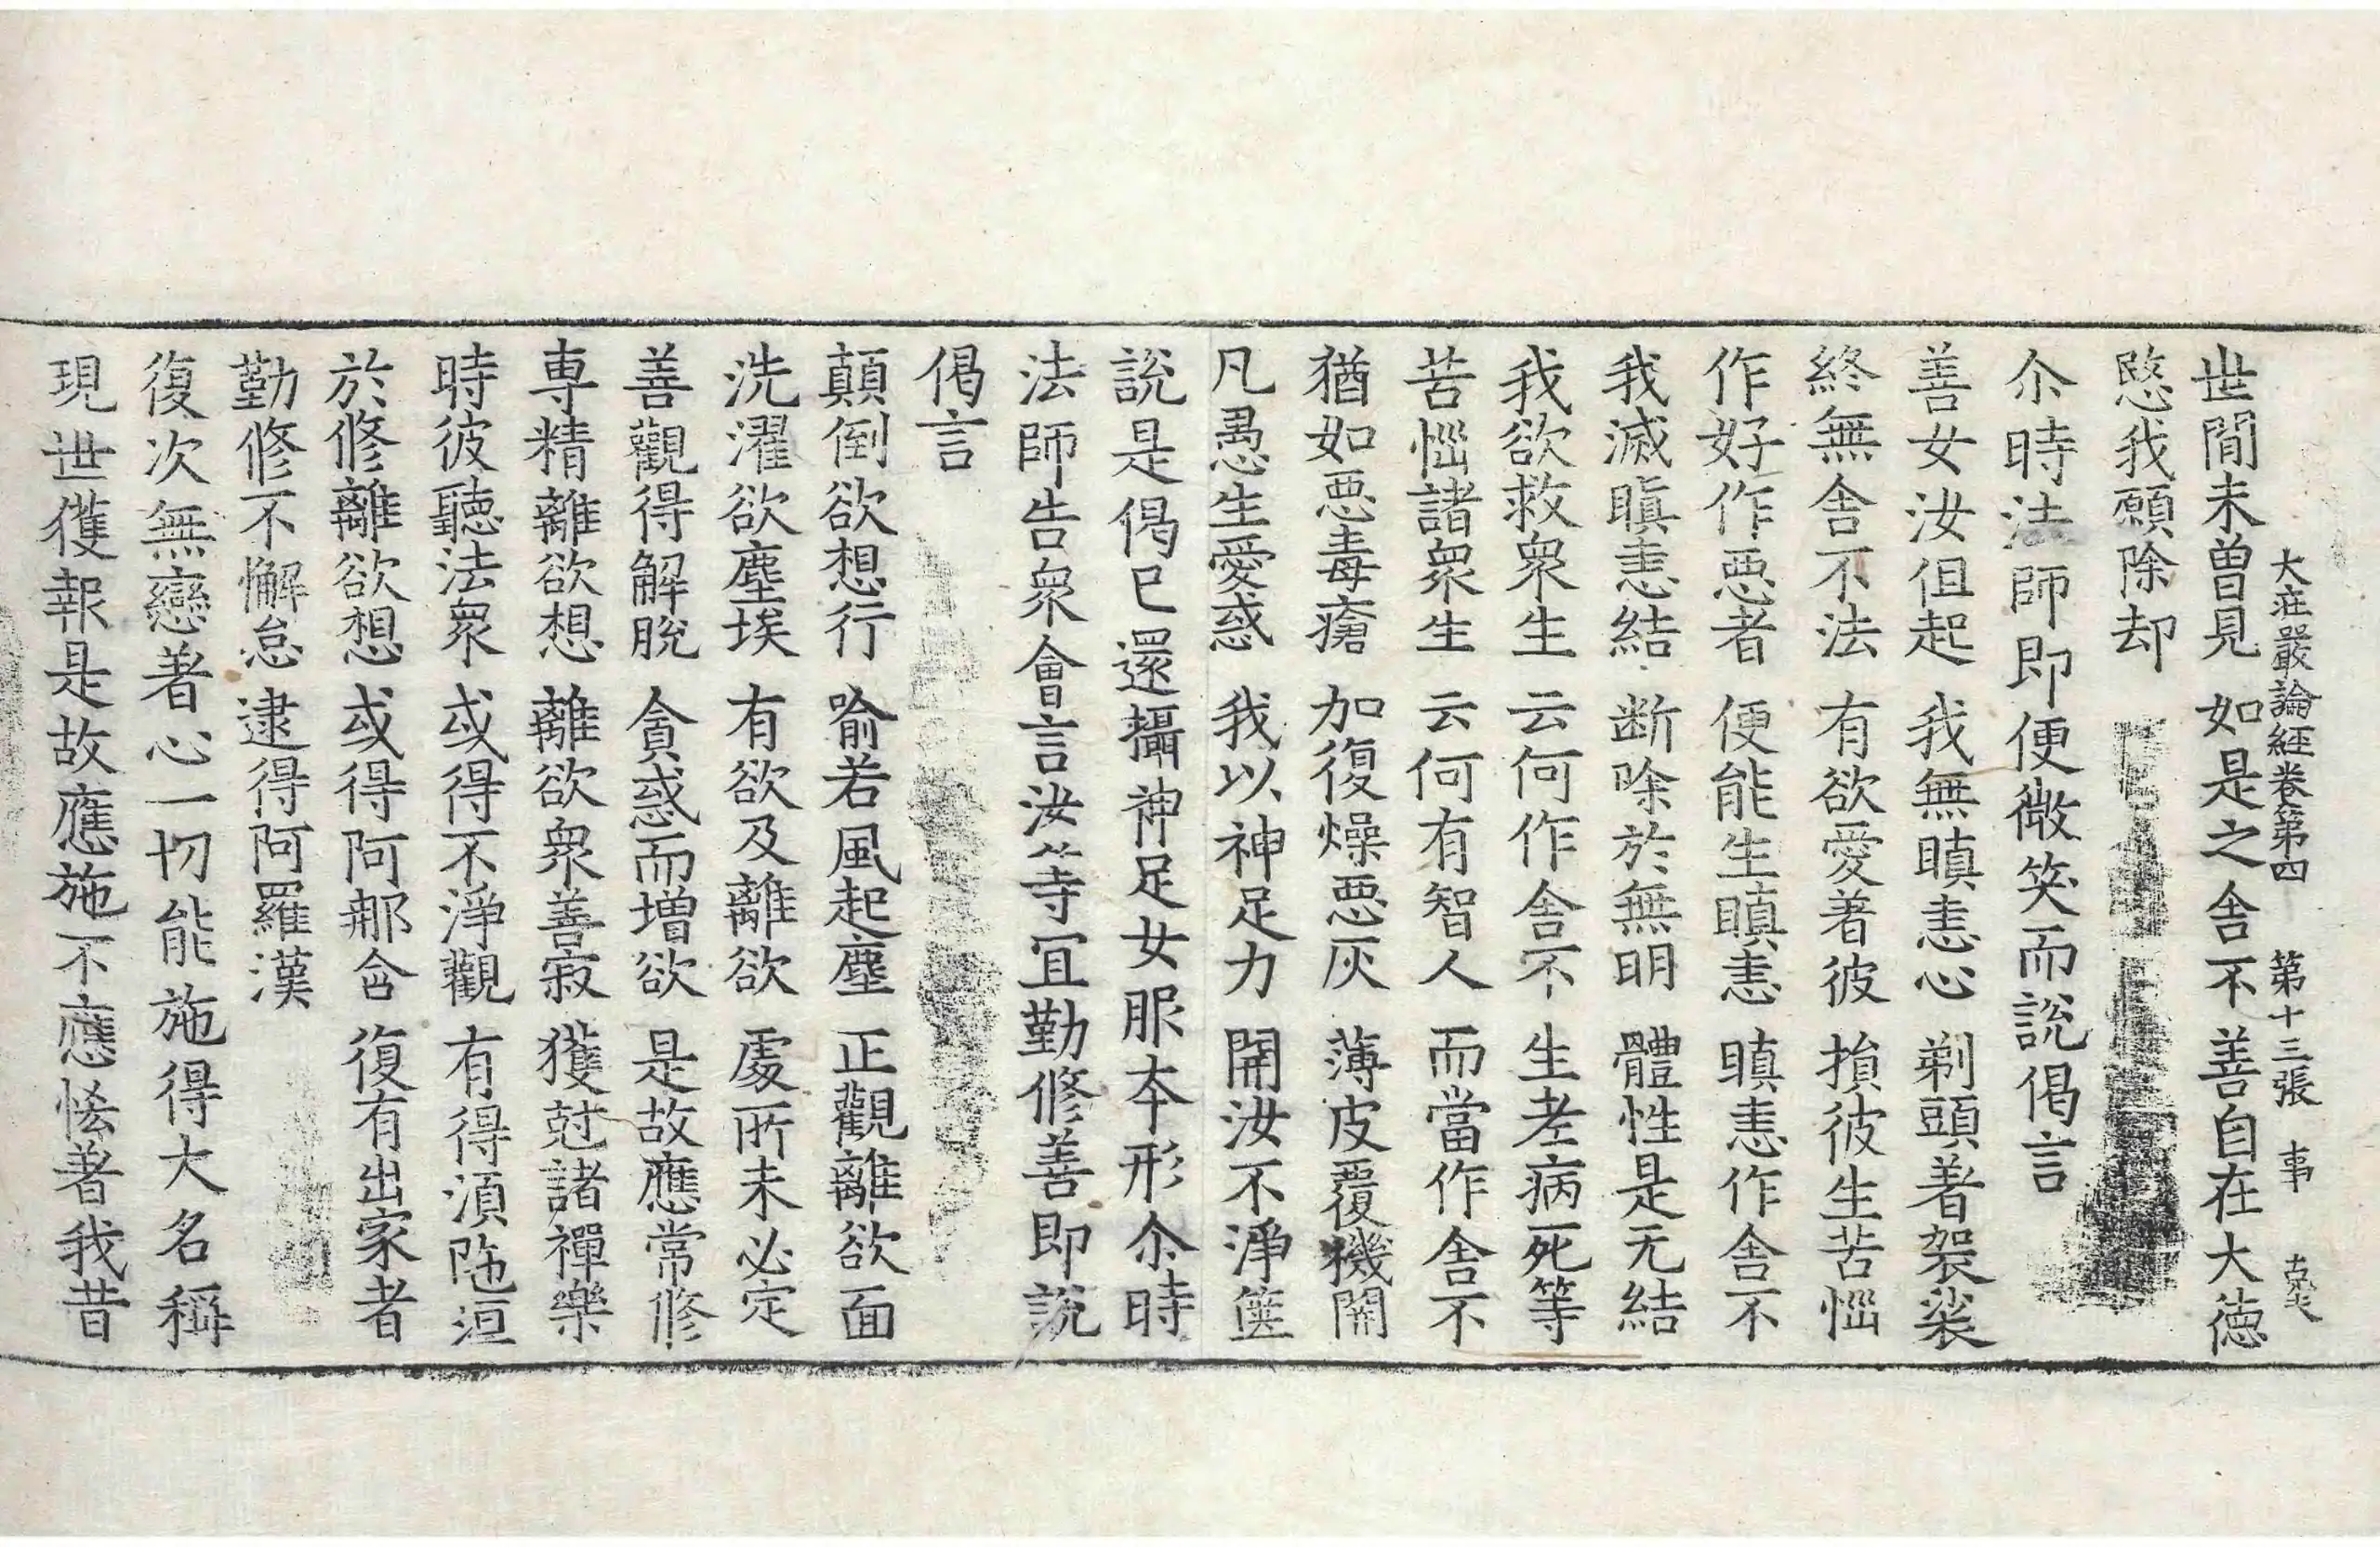 大庄嚴論經卷第四 第十三張 事
世間未曾見 如是之舍不 善自在大德
愍我願除却
尒時法師即便微笑而說偈言
善女汝但起 我無瞋恚心 剃頭著袈裟
終無舍不法 有欲愛著彼 損彼生苦惱
作好作惡者 便能生瞋恚 瞋恚作舍不
我滅瞋恚結 断除於無明 體性是无結
我欲救衆生 云何作舍不 生老病死等
苦惱諸衆生 云何有智人 而當作舍不
猶如惡毒瘡 加復燥惡灰 薄皮覆機關
凡愚生愛惑 我以神足力 開汝不淨篋
說是偈已還攝神足女服本形尒時
法師告衆會言汝等宜勤修善即說
偈言
顛倒欲想行 喻若風起塵 正觀離欲面
洗濯欲塵埃 有欲及離欲 處所未必定
善觀得解脫 貪惑而增欲 是故應常修
專精離欲想 離欲衆善寂 獲尅諸禪樂
時彼聽法衆 或得不淨觀 有得湏陁洹
於修離欲想 或得阿那含 復有出家者
勤修不懈怠 逮得阿羅漢
復次無戀著心一切能施得大名稱
現世獲報是故應施不應悋著我昔